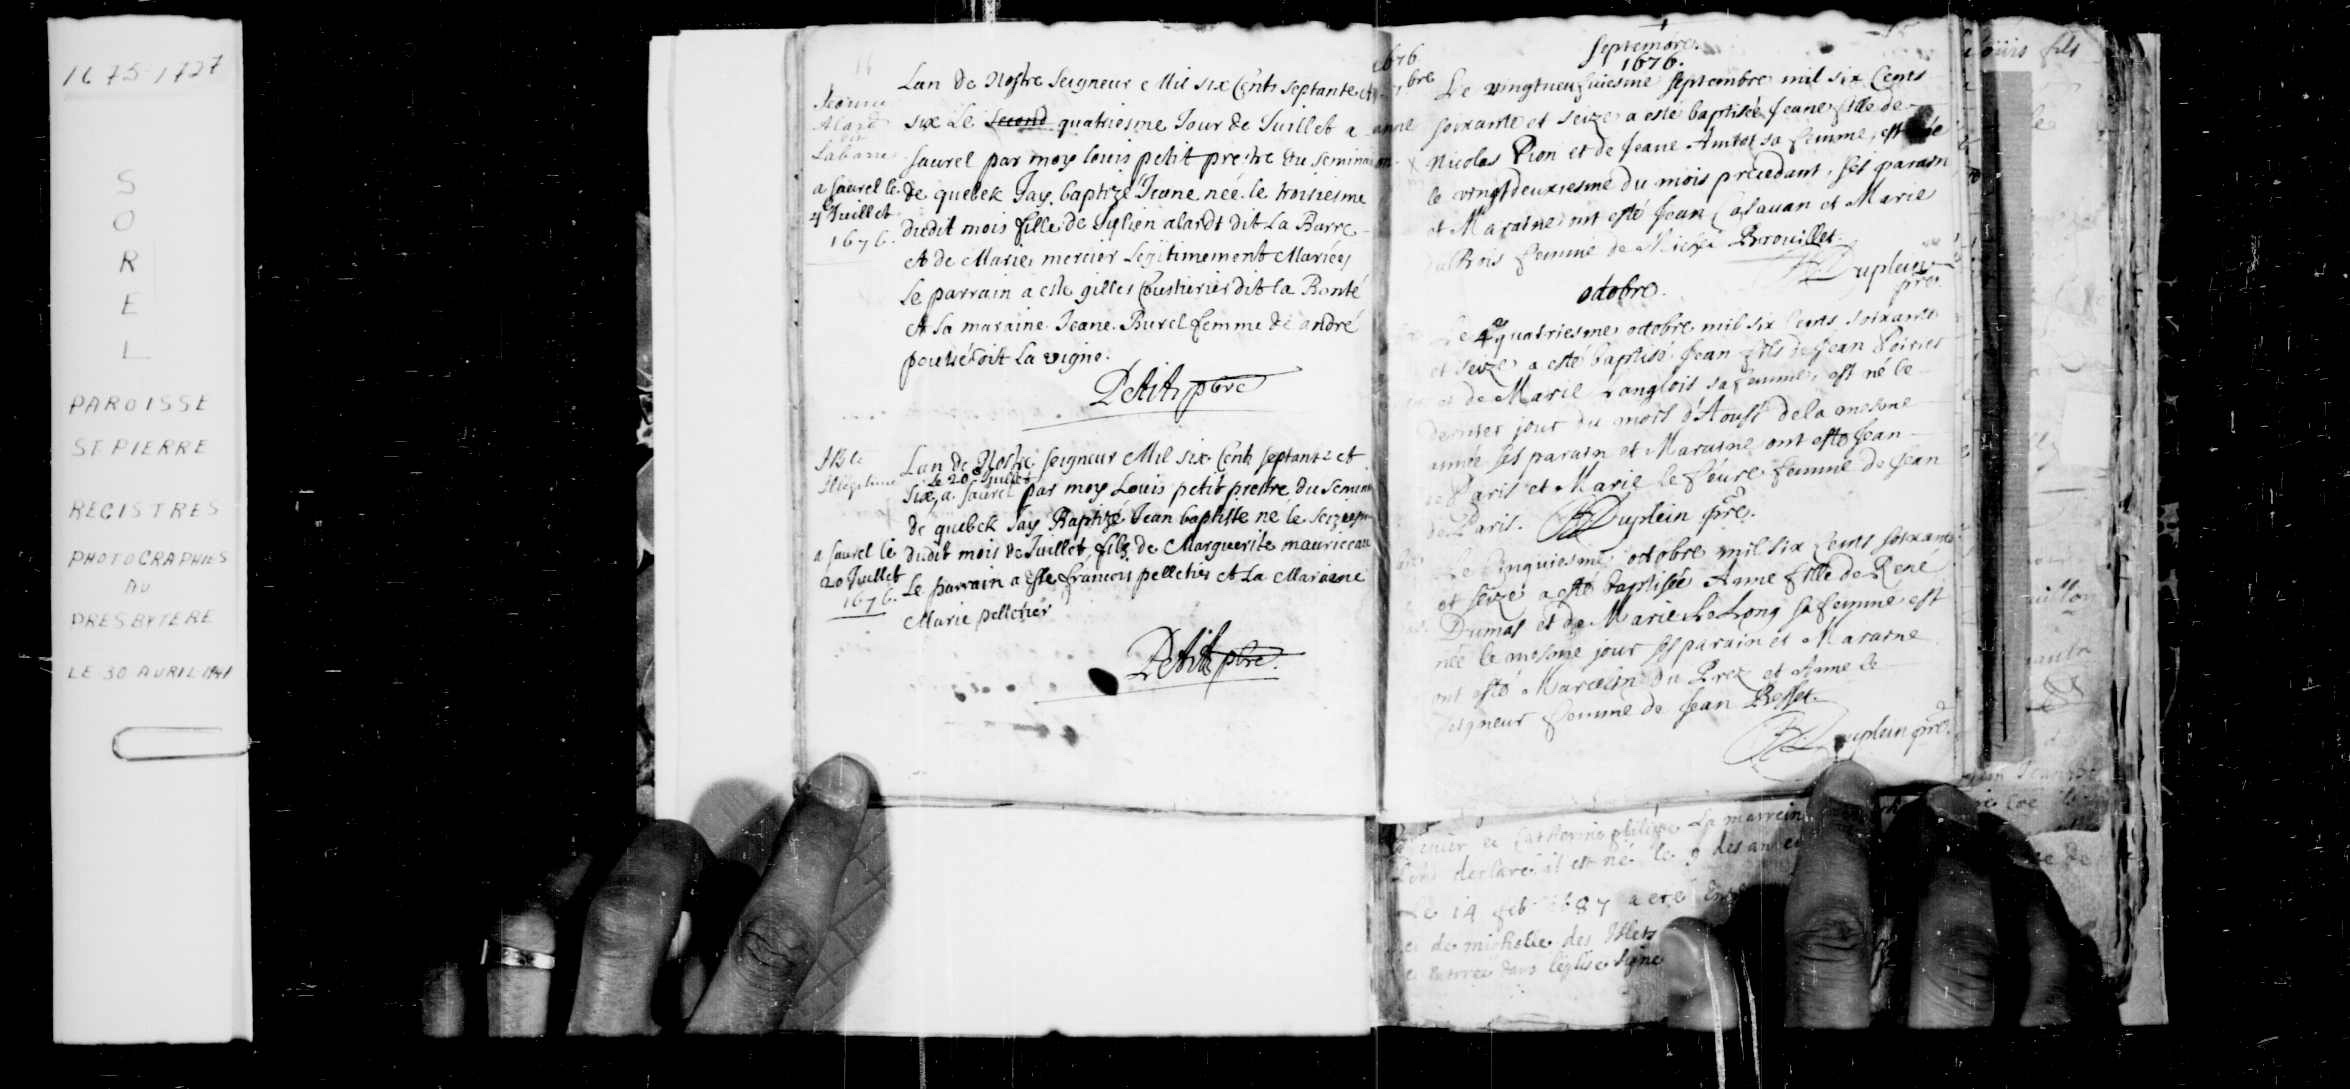 1675-1727
S
O
R
E
L
PAROISSE
ST PIERRE
REGISTRES
PHOTOGRAPHIES
AU
PRESBYTERE
LE 30 AVRIL 1941
Jeanne
Alard
Labarre
a saurel le
4e Juillet
1676.
Lan de Nostre Seigneur Mil six Cents septante et
six Le Second quatriesme Jour de Juillet a
saurel par moy louis petit prestre du semin
de quebek Jay baptizé Jeane née le troisiesme
dudit mois fille de Julien alardt dit La Barre
et de Marie mercier Legitimement Mariés
le parrain a este gilles Cousturier dit la Bonté
et la maraine Jeane Burel femme de andré
poutré dit La vigne.
Petit pbre
Illegitime
a saurel le
20 Juillet
1676.
Lan de Nostre seigneur Mil six Cents septante et
le 20e Juillet
six, a saurel par moy Louis petit prestre du semin
de quebek Jay Baptizé Jean baptiste né le seiziesm
dudit mois de Juillet, filz de Marguerite mauriceau
Le parrain a este francois pelletier et La Maraine
Marie pelletier
Petit pbre.
1676
bre
Septembre.
1676.
Le vingtneufuiesme septembre mil six Cents
soixante et seize a esté baptisée Jeane fille de
Nicolas Pion et de Jeane Amiot sa femme, est née
le vingtdeuxiesme du mois precedant, ses parain
et Maraine ont esté Jean Casauan et Marie
du Bois femme de Michel Brouillet.
Duplein
pre.
octobre.
Le 4e quatriesme octobre mil six Cents soixante
et seize a esté baptisé Jean fils de Jean Poirier
et de Marie Langlois sa femme, est né le
dernier jour du mois d'Aoust de la mesme
année ses parain et Maraine ont esté Jean
de Paris et Marie le feure femme de Jean
de Paris. Duplein pre.
Le Cinquiesme octobre mil six Cents soixante
et seize a esté baptisée Anne fille de René
Dumas et de Marie Le Long sa femme est
née le mesme jour ses parain et Maraine
ont esté Marcelin du Prez et Anne le
seigneur femme de Jean Besset.
Duplein pre.
Louis fils
Catherine philippe La marrein
declaré il est né le 9 des
Le 14 feb 1687 a ete
de michelle des Islets
Enterrée dans l'église signe